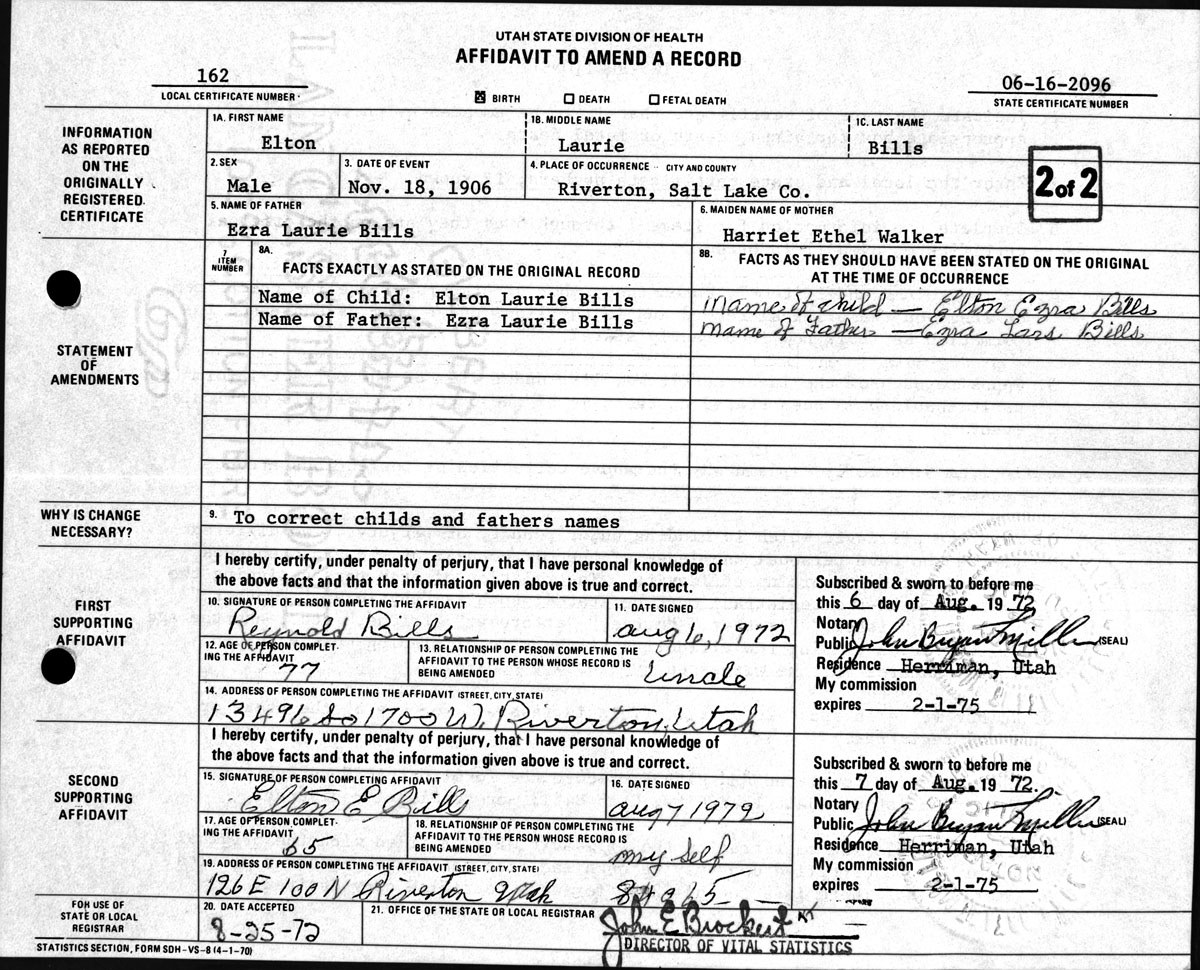 UTAH STATE DIVISION OF HEALTH
AFFIDAVIT TO AMEND A RECORD
162
LOCAL CERTIFICATE NUMBER
☒ BIRTH ☐ DEATH ☐ FETAL DEATH
06-16-2096
STATE CERTIFICATE NUMBER
INFORMATION AS REPORTED ON THE ORIGINALLY REGISTERED CERTIFICATE
1A. FIRST NAME
Elton
1B. MIDDLE NAME
Laurie
1C. LAST NAME
Bills
2. SEX
Male
3. DATE OF EVENT
Nov. 18, 1906
4. PLACE OF OCCURRENCE CITY AND COUNTY
Riverton, Salt Lake Co.
2 of 2
5. NAME OF FATHER
Ezra Laurie Bills
6. MAIDEN NAME OF MOTHER
Harriet Ethel Walker
STATEMENT OF AMENDMENTS
7 ITEM NUMBER
8A. FACTS EXACTLY AS STATED ON THE ORIGINAL RECORD
8B. FACTS AS THEY SHOULD HAVE BEEN STATED ON THE ORIGINAL
AT THE TIME OF OCCURRENCE
Name of Child: Elton Laurie Bills
Name of child — Elton Ezra Bills
Name of Father: Ezra Laurie Bills
Name of Father — Ezra Lars Bills
WHY IS CHANGE NECESSARY?
9. To correct childs and fathers names
FIRST SUPPORTING AFFIDAVIT
I hereby certify, under penalty of perjury, that I have personal knowledge of
the above facts and that the information given above is true and correct.
10. SIGNATURE OF PERSON COMPLETING THE AFFIDAVIT
Reynold Bills
11. DATE SIGNED
Aug 6, 1972
12. AGE OF PERSON COMPLET-
ING THE AFFIDAVIT
77
13. RELATIONSHIP OF PERSON COMPLETING THE
AFFIDAVIT TO THE PERSON WHOSE RECORD IS
BEING AMENDED
Uncle
14. ADDRESS OF PERSON COMPLETING THE AFFIDAVIT (STREET, CITY, STATE)
13496 So 1700 W, Riverton, Utah
Subscribed & sworn to before me
this 6 day of Aug. 19 72
Notary
Public John Bryan Miller (SEAL)
Residence Herriman, Utah
My commission
expires 2-1-75
SECOND SUPPORTING AFFIDAVIT
I hereby certify, under penalty of perjury, that I have personal knowledge of
the above facts and that the information given above is true and correct.
15. SIGNATURE OF PERSON COMPLETING AFFIDAVIT
Elton E Bills
16. DATE SIGNED
Aug 7 1972
17. AGE OF PERSON COMPLET-
ING THE AFFIDAVIT
65
18. RELATIONSHIP OF PERSON COMPLETING THE
AFFIDAVIT TO THE PERSON WHOSE RECORD IS
BEING AMENDED
my self
19. ADDRESS OF PERSON COMPLETING THE AFFIDAVIT (STREET, CITY, STATE)
126 E 100 N Riverton Utah 84065
Subscribed & sworn to before me
this 7 day of Aug. 19 72.
Notary
Public John Bryan Miller (SEAL)
Residence Herriman, Utah
My commission
expires 2-1-75
FOR USE OF STATE OR LOCAL REGISTRAR
20. DATE ACCEPTED
8-25-72
21. OFFICE OF THE STATE OR LOCAL REGISTRAR
John E Brockert
DIRECTOR OF VITAL STATISTICS
STATISTICS SECTION, FORM SDH-VS-8 (4-1-70)